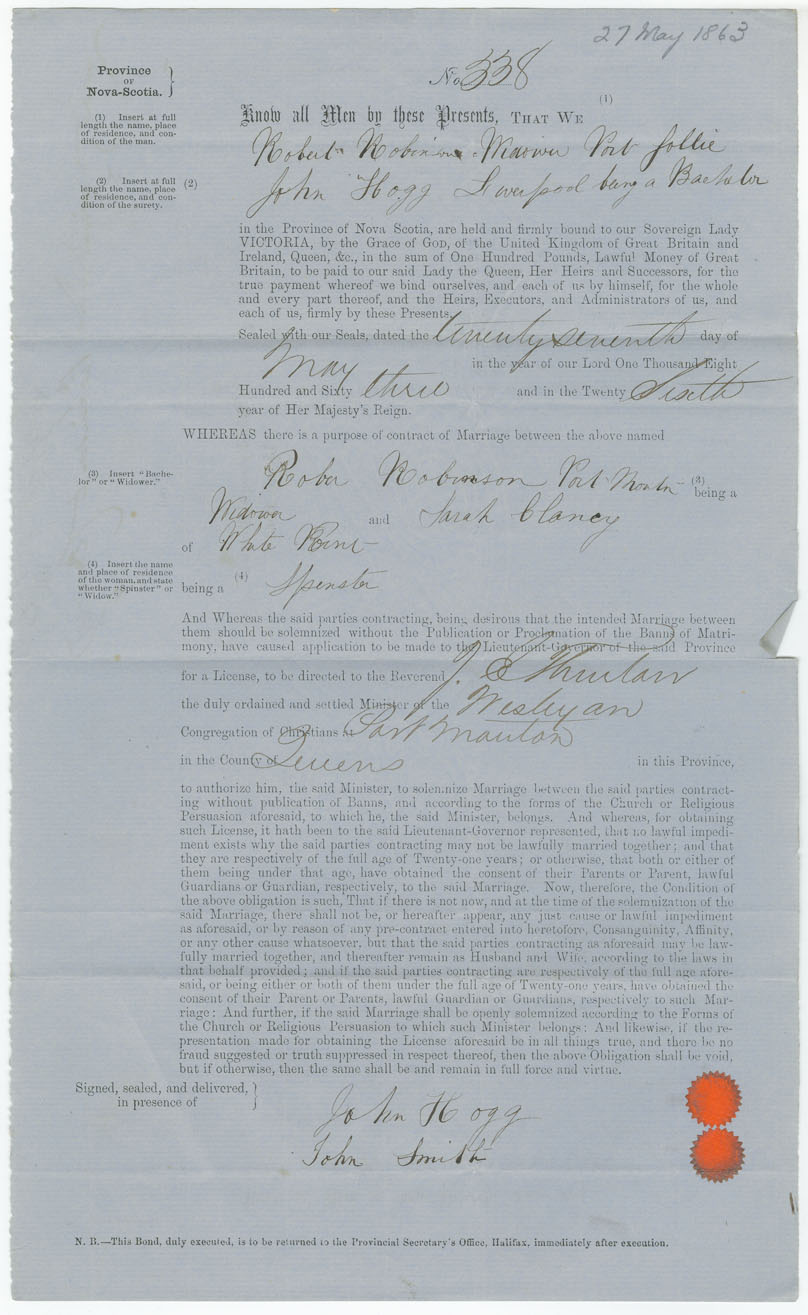 27 May 1863
Province
OF
Nova-Scotia.
No. 338
(1) Insert at full
length the name, place
of residence, and con-
dition of the man.
(1)
Know all Men by these Presents, THAT WE
Robert Robinson Widower Port Jollie
(2) Insert at full
length the name, place
of residence, and con-
dition of the surety.
(2) John Hogg Liverpool being a Bachelor
in the Province of Nova Scotia, are held and firmly bound to our Sovereign Lady
VICTORIA, by the Grace of GOD, of the United Kingdom of Great Britain and
Ireland, Queen, &c., in the sum of One Hundred Pounds, Lawful Money of Great
Britain, to be paid to our said Lady the Queen, Her Heirs and Successors, for the
true payment whereof we bind ourselves, and each of us by himself, for the whole
and every part thereof, and the Heirs, Executors, and Administrators of us, and
each of us, firmly by these Presents.
Sealed with our Seals, dated the twenty seventh day of
May in the year of our Lord One Thousand Eight
Hundred and Sixty three and in the Twenty Sixth
year of Her Majesty's Reign.
WHEREAS there is a purpose of contract of Marriage between the above named
(3) Insert "Bache-
lor" or "Widower."
Rober Robinson Port Mouton (3) being a
Widower and Sarah Clancy
of White Point
(4) Insert the name
and place of residence
of the woman, and state
whether "Spinster" or
"Widow."
being a (4) Spenster
And Whereas the said parties contracting, being desirous that the intended Marriage between
them should be solemnized without the Publication or Proclamation of the Banns of Matri-
mony, have caused application to be made to the Lieutenant-Governor of the said Province
for a License, to be directed to the Reverend J. S
the duly ordained and settled Minister of the Wesleyan
Congregation of Christians at Port Mouton
in the County of Queens in this Province,
to authorize him, the said Minister, to solemnize Marriage between the said parties contract-
ing without publication of Banns, and according to the forms of the Church or Religious
Persuasion aforesaid, to which he, the said Minister, belongs. And whereas, for obtaining
such License, it hath been to the said Lieutenant-Governor represented, that no lawful impedi-
ment exists why the said parties contracting may not be lawfully married together; and that
they are respectively of the full age of Twenty-one years; or otherwise, that both or either of
them being under that age, have obtained the consent of their Parents or Parent, lawful
Guardians or Guardian, respectively, to the said Marriage. Now, therefore, the Condition of
the above obligation is such, That if there is not now, and at the time of the solemnization of the
said Marriage, there shall not be, or hereafter appear, any just cause or lawful impediment
as aforesaid, or by reason of any pre-contract entered into heretofore, Consanguinity, Affinity,
or any other cause whatsoever, but that the said parties contracting as aforesaid may be law-
fully married together, and thereafter remain as Husband and Wife, according to the laws in
that behalf provided; and if the said parties contracting are respectively of the full age afore-
said, or being either or both of them under the full age of Twenty-one years, have obtained the
consent of their Parent or Parents, lawful Guardian or Guardians, respectively to such Mar-
riage: And further, if the said Marriage shall be openly solemnized according to the Forms of
the Church or Religious Persuasion to which such Minister belongs: And likewise, if the re-
presentation made for obtaining the License aforesaid be in all things true, and there be no
fraud suggested or truth suppressed in respect thereof, then the above Obligation shall be void,
but if otherwise, then the same shall be and remain in full force and virtue.
Signed, sealed, and delivered,
in presence of
John Hogg
John Smith
N. B.—This Bond, duly executed, is to be returned to the Provincial Secretary's Office, Halifax, immediately after execution.